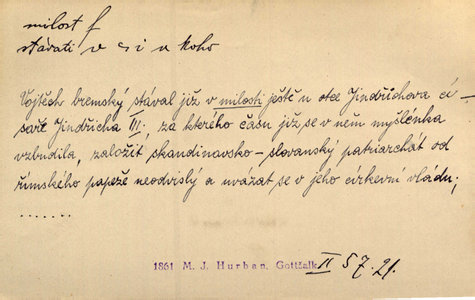 milost f
stávati v ~ i u koho
Vojtěch bremský stával již v milosti ještě u otce Jindřichova cí-
saře Jindřicha III; za kterého času již se v něm myšlénka
vzbudila, založiti skandinavsko-slovanský patriarchát od
římského papeže neodvislý a uvázat se v jeho církevní vládu;
.......
1861 M. J. Hurban, Gottšalk II 57.21.